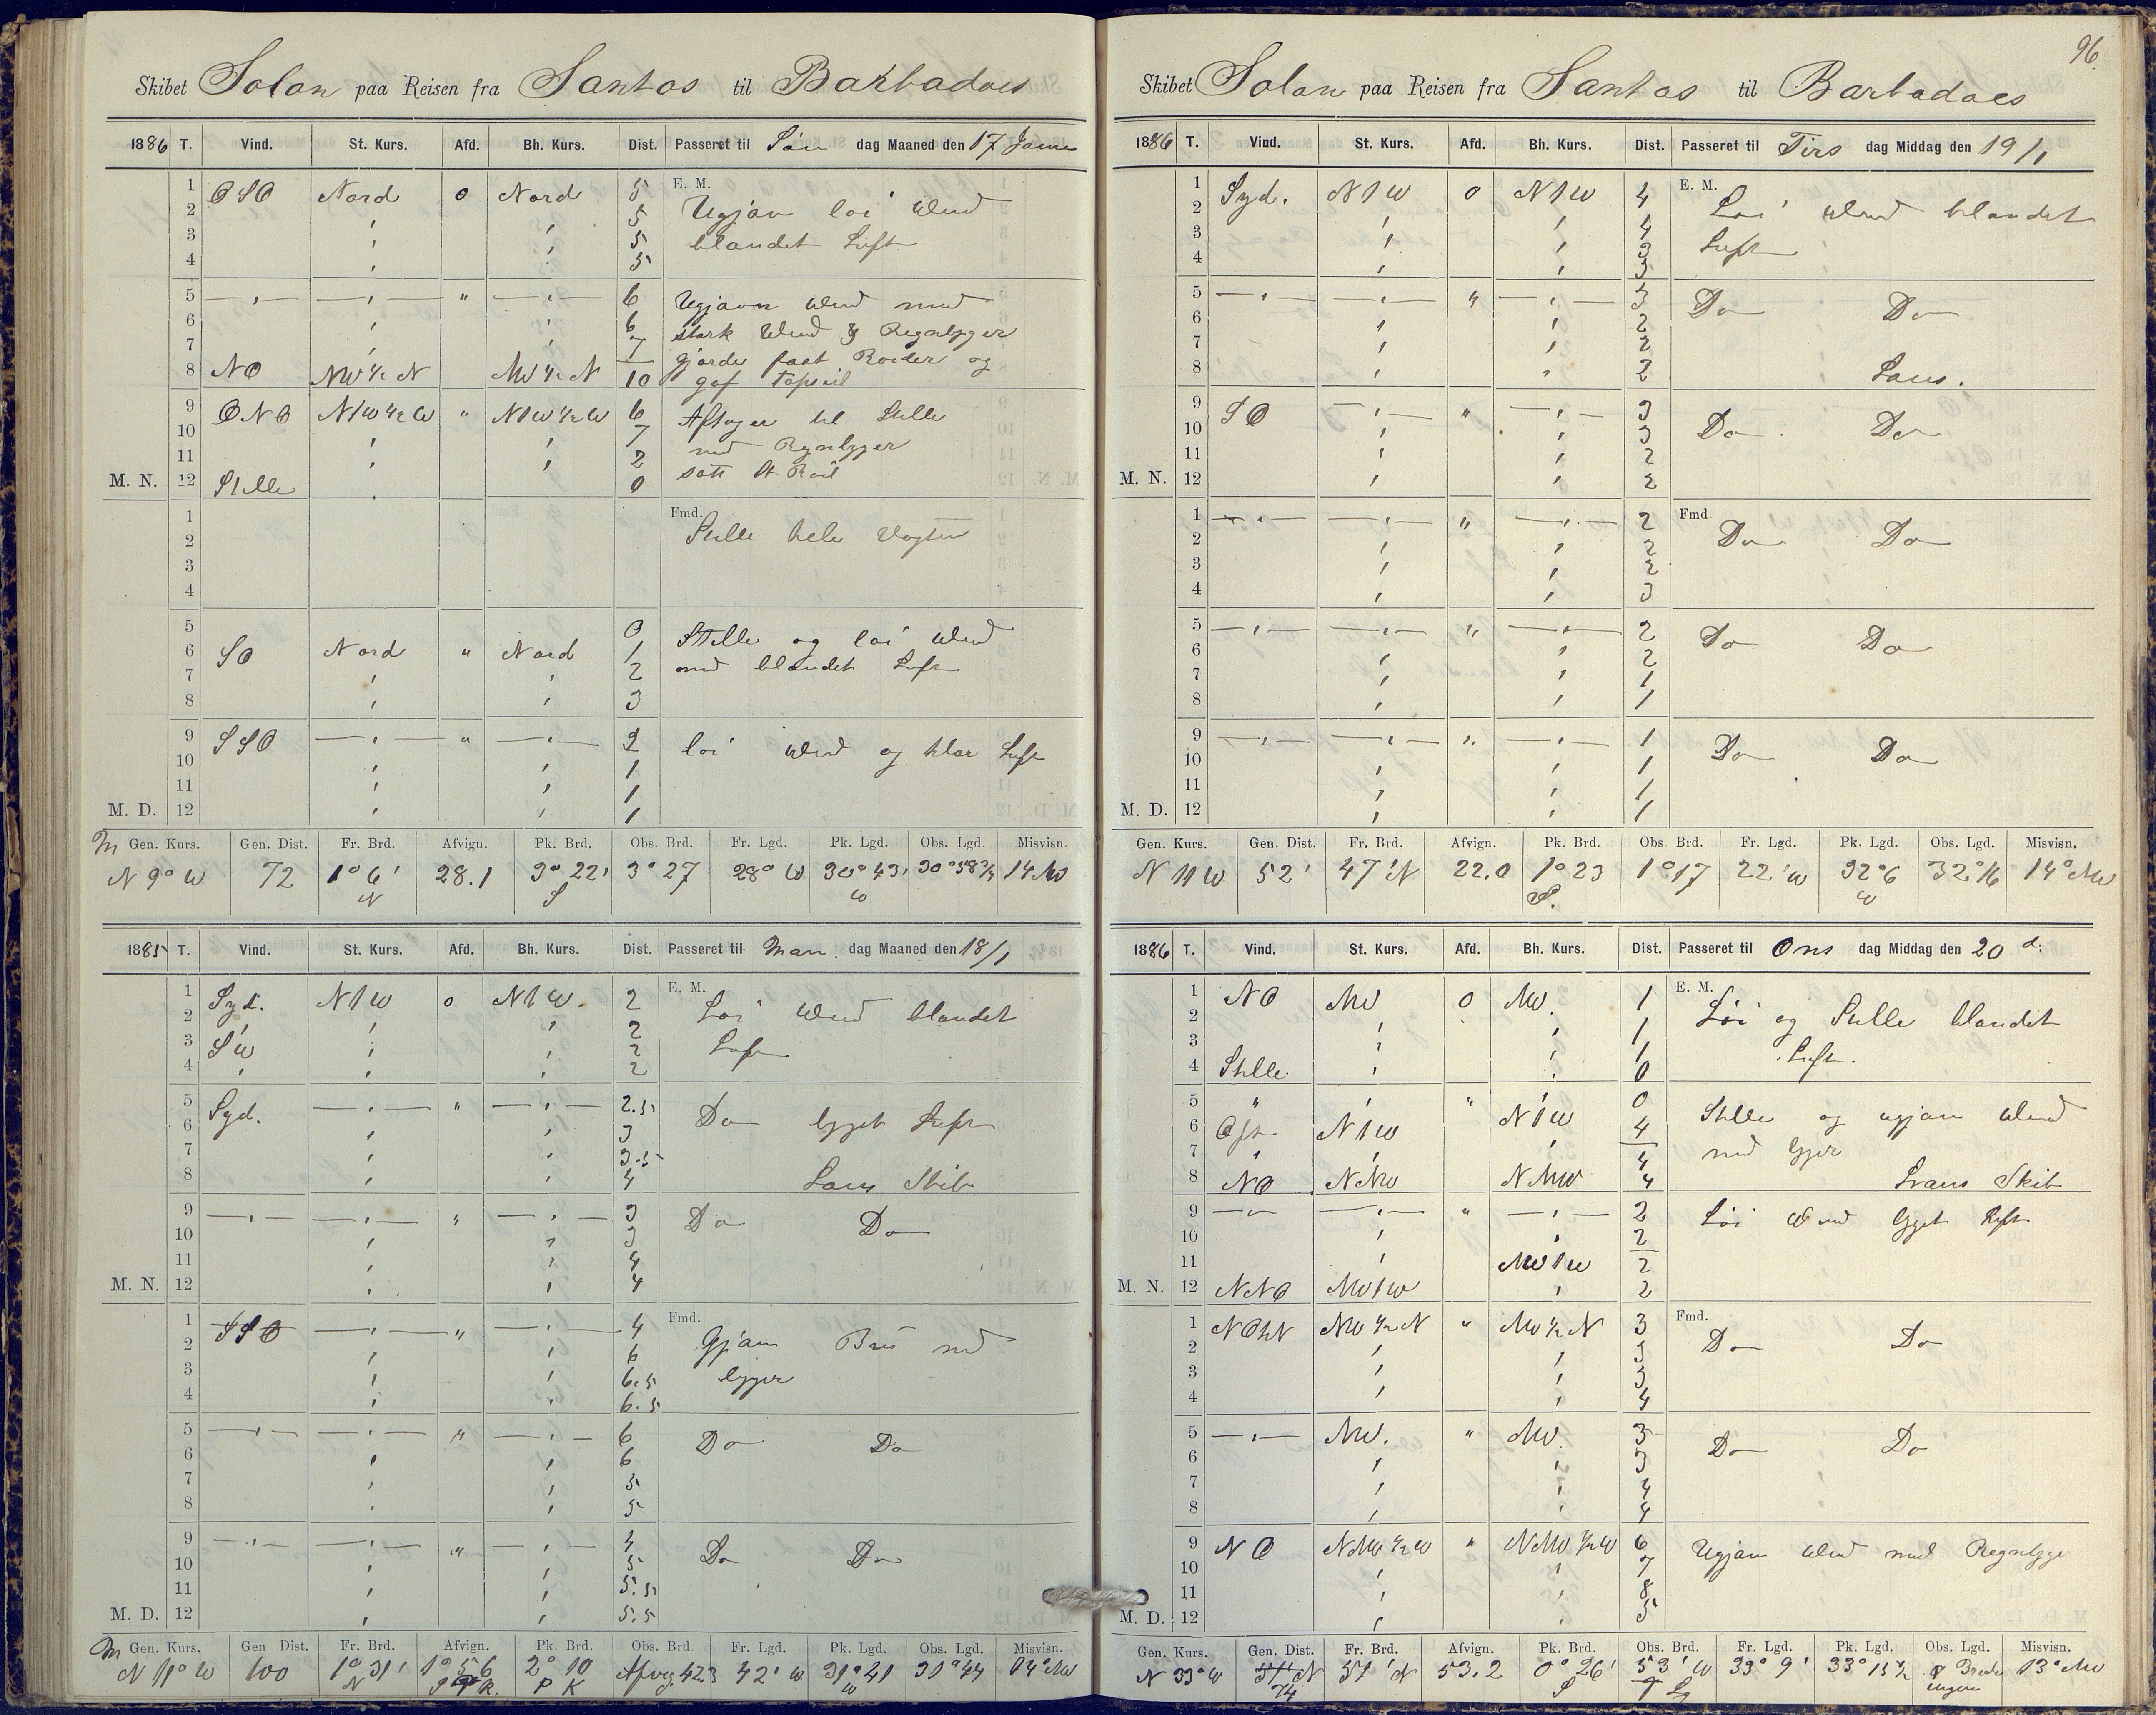 Skibet Solon paa Reisen fra Santos til Barbadoes
1886 T. Vind. St. Kurs. Afd. Bh. Kurs. Dist. Passeret til Søn dag Maaned den 17 Janu
1 OSO Nord 0 Nord 5 E. M.
2 5 Ugjævn løi Vind
3 5 blandet Luft
4 5
5 — " — — " — " — " — 6 Ugjævn Vind med
6 6 stærk Vind & Regnbyger
7 7 gjorde fast Roiler og
8 NO NW ½ N NW ½ N 10 gaf Topseil
9 ONO N1W ½ W " N1W ½ W 6 Aftager til Stille
10 7 med Regnbyger
11 2 satte St Roil
M. N. 12 Stille 0
1 Fmd.
2 Stille hele Vagten
3
4
5 0 Stille og løi Vind
6 SO Nord " Nord 1 med blandet Luft
7 2
8 3
9 SSO — " — " — " — 2 løi Vind og klar Luft
10 1
11 1
M. D. 12 1
M Gen. Kurs. Gen. Dist. Fr. Brd. Afvign. Pk. Brd. Obs. Brd. Fr. Lgd. Pk. Lgd. Obs. Lgd. Misvisn.
N 9° W 72 1° 6' N 28.1 3° 22' S 3° 27 28° W 30° 43' W 30° 58¾ 14 NW
1885 T. Vind. St. Kurs. Afd. Bh. Kurs. Dist. Passeret til Man dag Maaned den 18/1
1 Syd. N1W 0 N1W. 2 E. M.
2 2 Løi Vind blandet
3 SW 2 Luft
4 2
5 Syd. — " — " — " — 2.5 Do bygget Luft
6 3
7 3.5
8 4 Lans Skib
9 — " — — " — " — " — 3 Do Do
10 3
11 4
M. N. 12 4
1 SSO — " — " — " — 4 Fmd.
2 6 Gjævn Bris med
3 6.5 byger
4 6.5
5 — " — — " — " — " — 6 Do Do
6 6
7 5
8 5
9 — " — — " — " — " — 4 Do Do
10 5
11 5.5
M. D. 12 5.5
M Gen. Kurs. Gen Dist. Fr. Brd. Afvign. Pk. Brd. Obs. Brd. Fr. Lgd. Pk. Lgd. Obs. Lgd. Misvisn.
N 11° W 100 1° 31' N 1° 56 2° 10 P K Afvg. 42.3 42' W 31° 41 W 31° 44 14° NW
96.
Skibet Solon paa Reisen fra Santos til Barbadoes
1886 T. Vind. St. Kurs. Afd. Bh. Kurs. Dist. Passeret til Tirs dag Middag den 19/1
1 Syd. N1W 0 N1W 4 E. M.
2 4 Løi Vind blandet
3 3 Luft
4 3
5 — " — — " — " — " — 3 Do Do
6 2
7 2
8 2 Lans.
9 SO — " — " — " — 3 Do Do
10 3
11 2
M. N. 12 2
1 — " — — " — " — " — 2 Fmd
2 2 Do Do
3 2
4 3
5 — " — — " — " — " — 2 Do Do
6 2
7 1
8 1
9 — " — — " — " — " — 1 Do Do
10 1
11 1
M. D. 12 1
Gen. Kurs. Gen. Dist. Fr. Brd. Afvign. Pk. Brd. Obs. Brd. Fr. Lgd. Pk. Lgd. Obs. Lgd. Misvisn.
N 11 W 52' 47' N 22.0 1° 23 S. 1° 17 22' W 32° 6 W 32° 16 14° NW
1886 T. Vind. St. Kurs. Afd. Bh. Kurs. Dist. Passeret til Ons dag Middag den 20 d.
1 NO NW 0 NW. 1 E. M.
2 1 Løi og Stille blandet
3 1 Luft.
4 Stille 0
5 " " 0 Stille og ugjævn Vind
6 Øst N1W N1W 4 med byger
7 4
8 NO NNW NNW 4 Lrans Skib
9 — " — — " — " — " — 2 Løi Vind bygget Luft
10 2
11 NW1W 2
M. N. 12 NNO NW1W 2
1 NOhN NW ½ N " NW ½ N 3 Fmd.
2 3 Do Do
3 3
4 4
5 — " — NW. " NW. 3 Do Do
6 3
7 4
8 4
9 NO NNW ½ W " NNW ½ W 6 Ugjævn Vind med Regnbyge
10 7
11 8
M. D. 12 5
Gen. Kurs. Gen. Dist. Fr. Brd. Afvign. Pk. Brd. Obs. Brd. Fr. Lgd. Pk. Lgd. Obs. Lgd. Misvisn.
N 33° W 74 51' N 53.2 0° 26' S 53' W 33° 9' 33° 13½ Brede ingen 13° NW